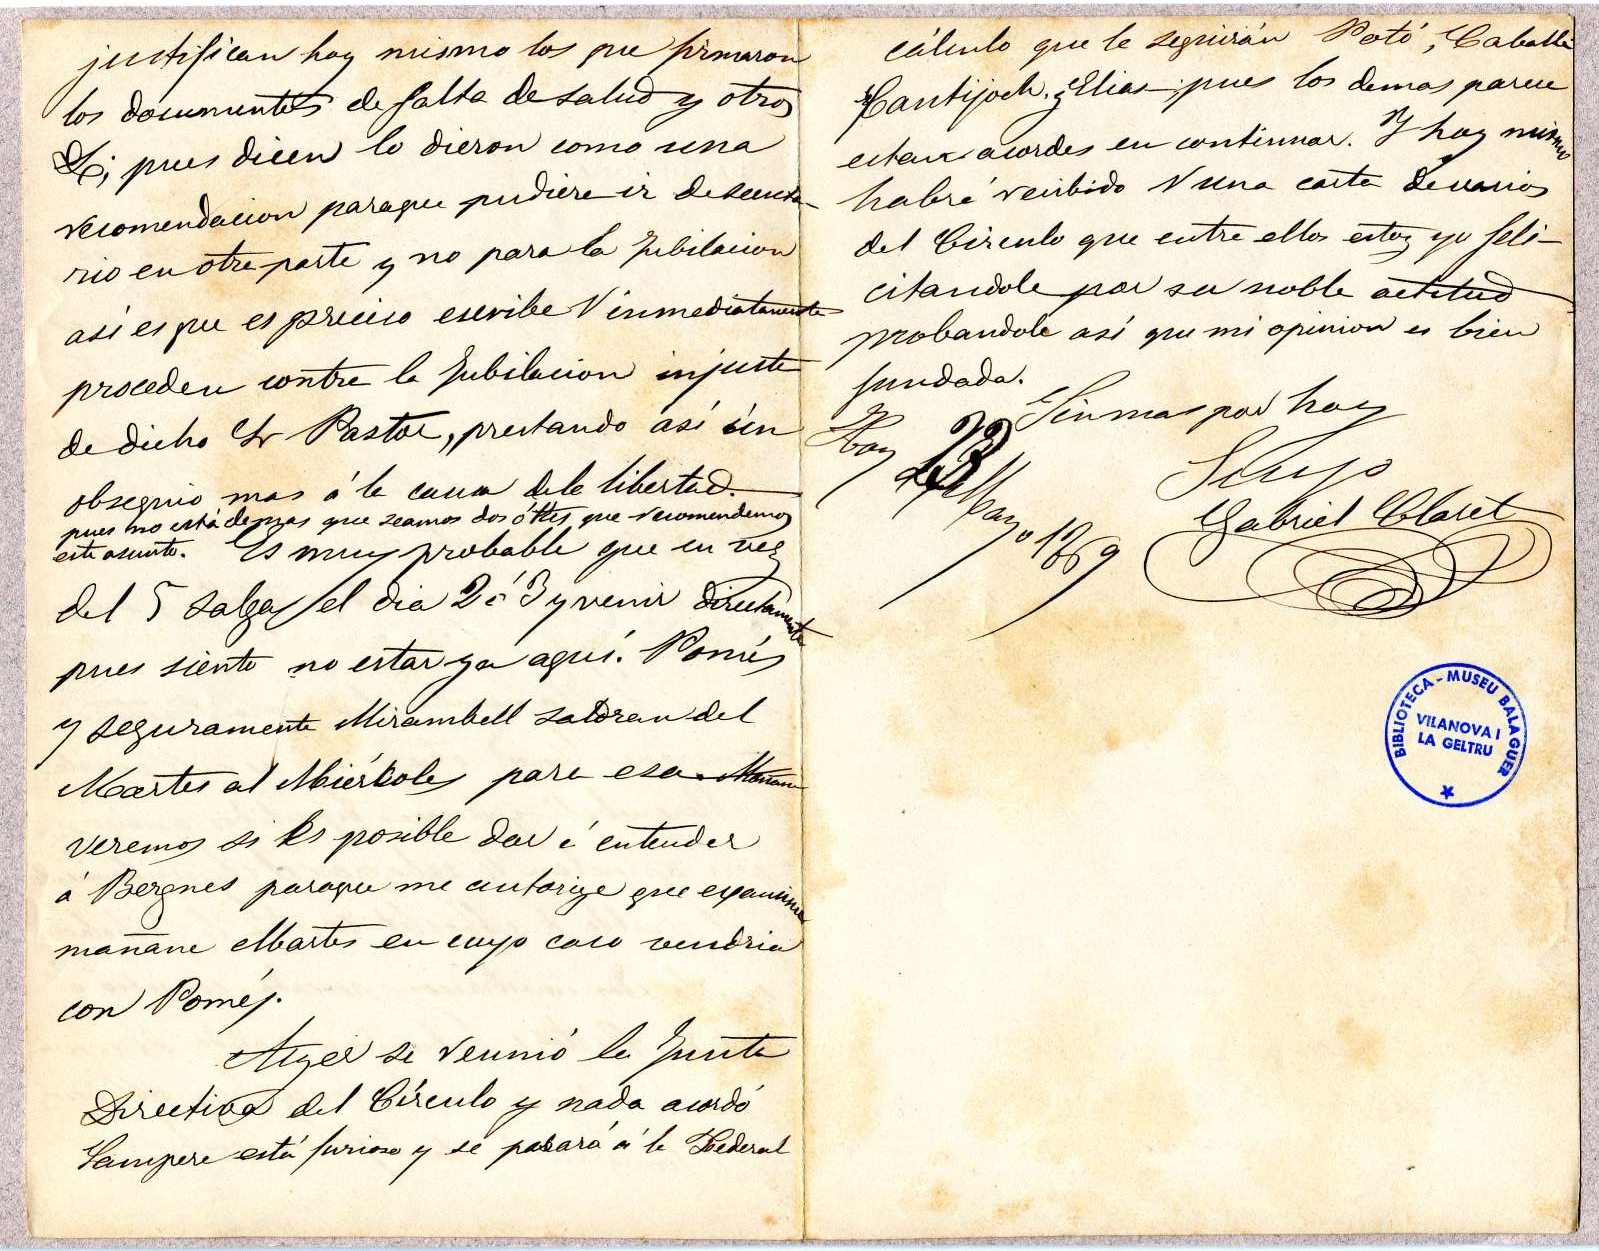 justifican hoy mismo los que firmaron
los documentets de falta de salud y otros
pues dicen lo dieron como una
recomendacion paraque pudiere ir de secreta-
rio en otre parte y no para la Jubilacion
así es que es preciso escribe V inmediatamente
proceden contre la Jubilacion injuste
de dicho Sr Pastor, prestando así ún
obsequio mas á le causa dele libertad.
pues no está demas que seamos dos ó tres que recomendemos
este asunto. Es muy probable que en vez
del 5 salga el dia 2 ó 3 y venir directamente
pues siento no estar ya aquí. Pomés
y seguramente Mirambell saldran del
Martes al Miércoles para esa Mañana
veremos si es posible dar é entender
á Bergnes paraque me autorize que examine
mañane Martes en cuyo caso vendria
con Pomés.
Ayer se reunió le Junte
Directiva del Círculo y nada acordó
Sampere está furioso y se pasará á le Federal
cálculo que le seguirán Potó, Caballé
Cantijoch, y Elias pues los demas parece
estan acordes en continuar. Y hoy mismo
habré recibido V una carte de varios
del Círculo que entre ellos estoy yo feli-
citandole por su noble actitud
probandole así que mi opinion es bien
fundada.
Sin mas por hoy
Hoy 23 Mayo 1869
Suyo
Gabriel Claret
BIBLIOTECA - MUSEU BALAGUER
VILANOVA I
LA GELTRU